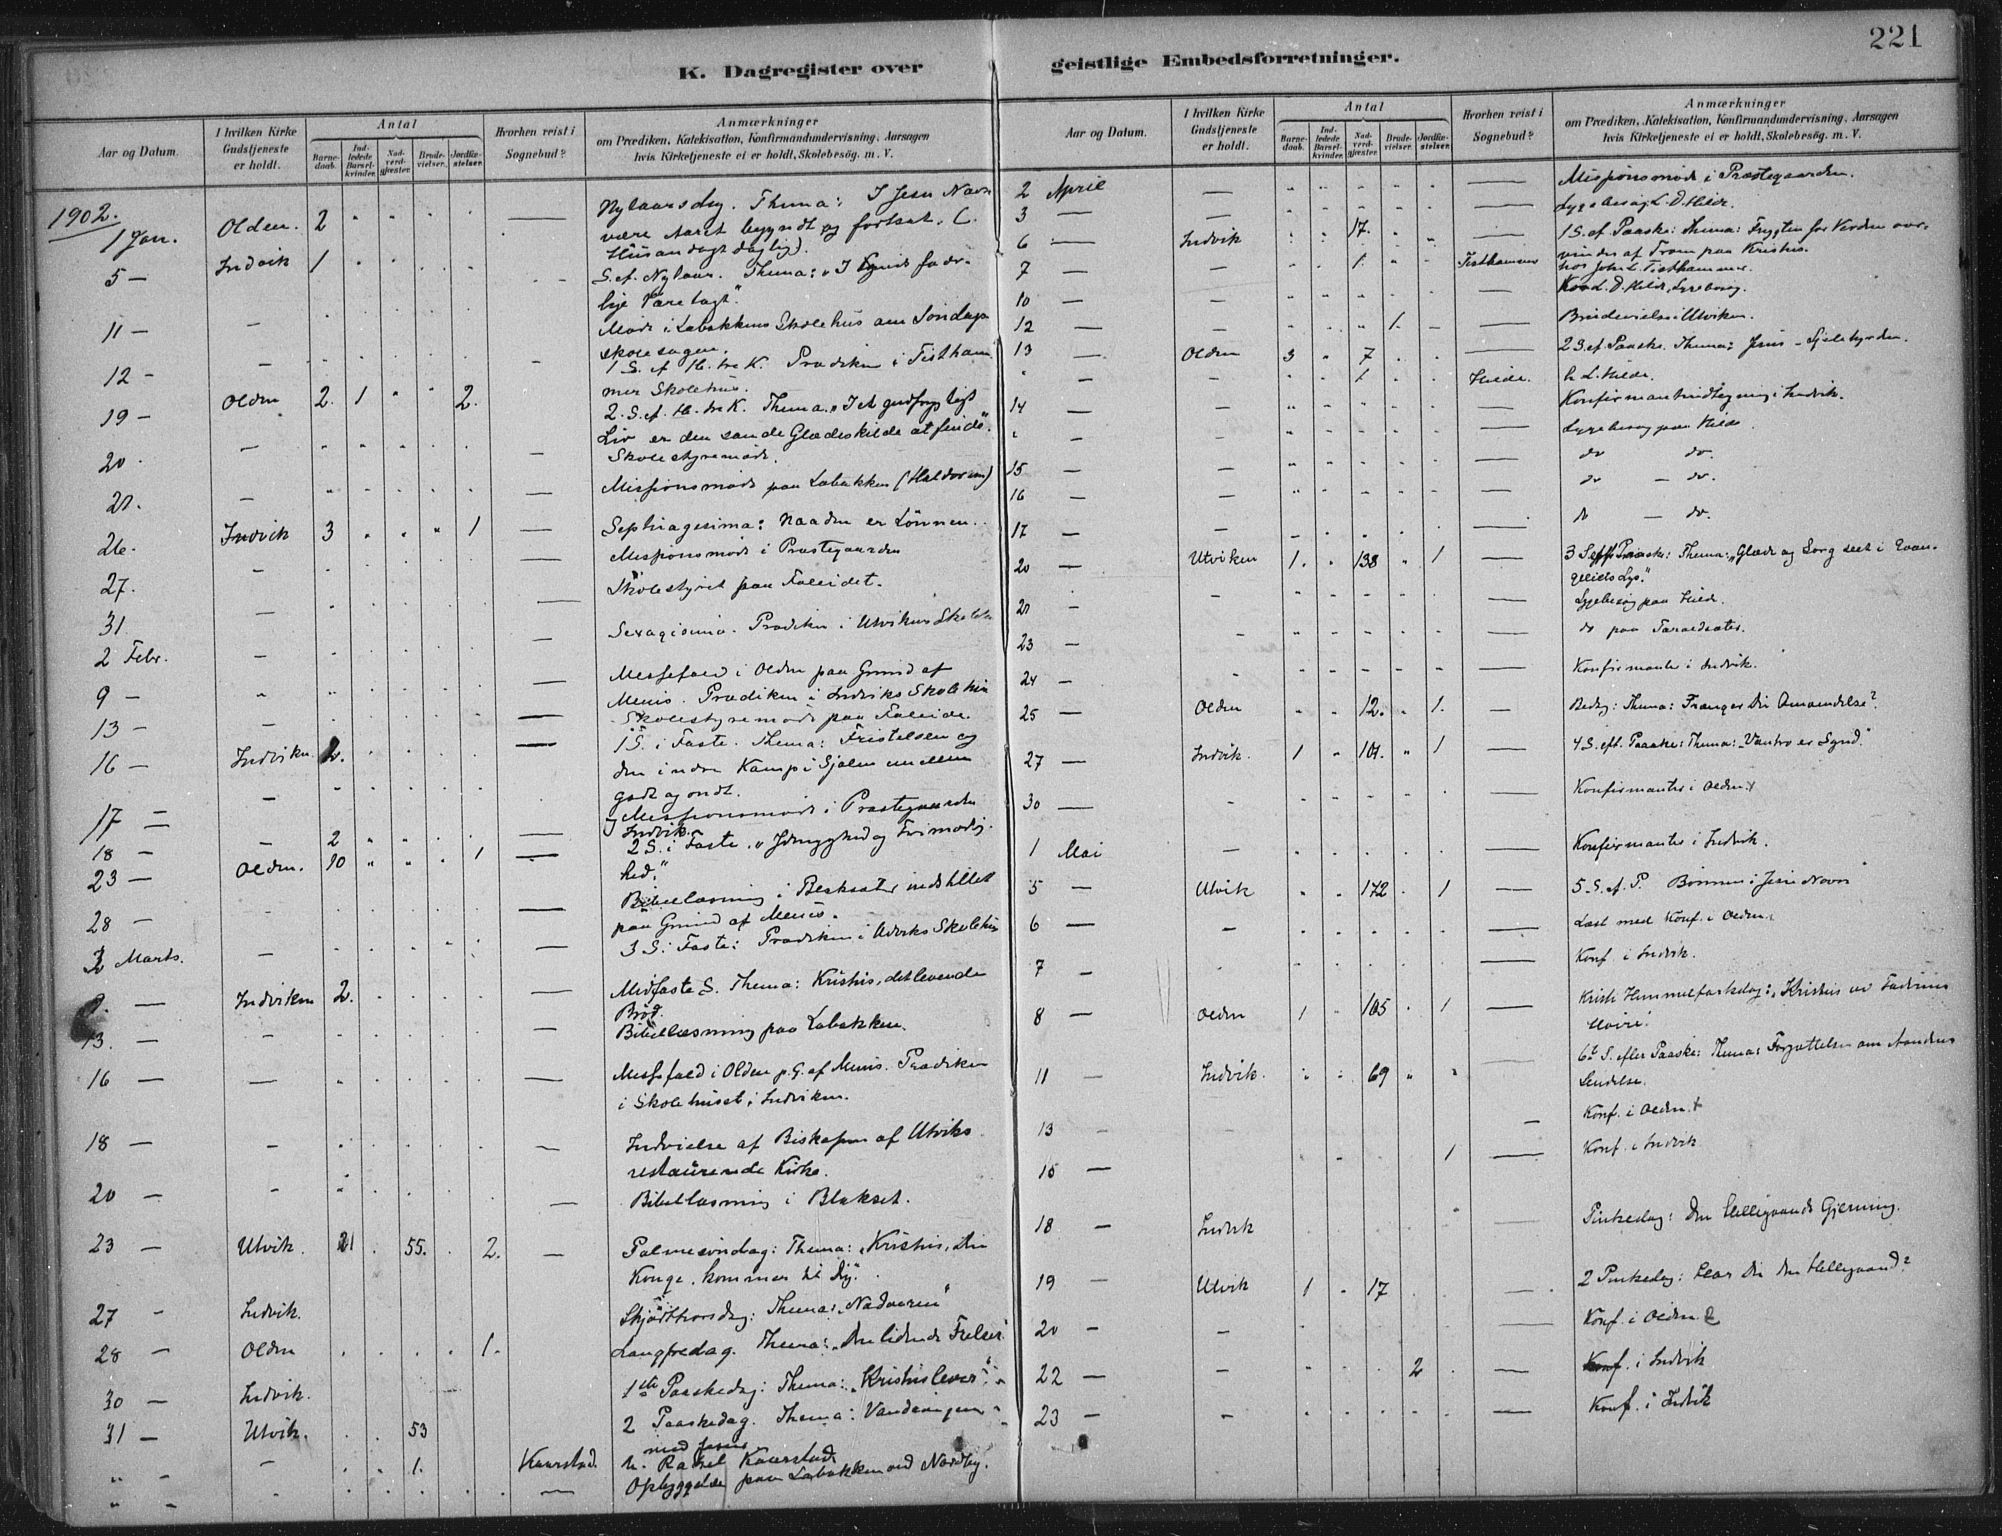 221
K. Dagregister over geistlige Embedsforretninger.
Aar og Datum.
I hvilken Kirke Gudstjeneste er holdt.
Antal
Barnedaab.
Indledede Barselkvinder.
Nadverdgjæster.
Brudevielser.
Jordfæstelser.
Hvorhen reist i Sognebud?
Anmærkninger
om Prædiken, Katekisation, Konfirmandundervisning, Aarsagen
hvis Kirketjeneste ei er holdt, Skolebesøg. m. V.
1902.
1 Jan. Olden. 2 Nytaarsdag. Thema: I Jesu Navn
være Aaret begyndt og fortsat.
Husandagt daglig).
5 — Indvik 1 S. ef. Nytaar. Thema: "I Guds fader-
lige Varetægt".
11 — — Møde i Løbakkens Skolehus om Søndags
skolesagen.
12 — 1 S. ef H. tre K. Prædiken i Tistham-
mer Skolehus.
19 — Olden 2. 1 2. 2. S. ef. H. tre K. Thema: "I et gudfrygtigt
Liv er den sande Glædeskilde at finde".
20. — Skolestyremøde.
20. — Missionsmøde paa Løbakken
26. Indvik 3 1 Septuagesima: Naaden er Lønnen.
27. — Missionsmøde i Præstegaarden
31 — Skolestyret paa Faleidet.
2 Febr. — Sexagesima. Prædiken i Utvikens Skoleh
9 — Messefald i Olden paa Grund af
Prædiken i Indviks Skolehus
13 — — Skolestyremøde paa Faleide.
16 — Indviken 2. 1 S. i Faste. Thema: Fristelsen og
den indre Kamp i Sjælen mellem
godt og ondt.
17 — — Missionsmøde i Præstegaarden
Indvik.
18 — — 2
23 — Olden. 10 1 2 S. i Faste. "Ydmyghed og Frimodig-
hed."
28 — Bibellæsning i indstillet
paa Grund af
2 Marts. — 3 S. i Faste: Prædiken i Skolehus
9. — Indviken 2. Midfaste S. Thema: Kristus, det levende
Brød.
13. — Bibellæsning paa Løbakken.
16 — — Messefald i Olden p. G. af Prædiken
i Skolehuset i Indviken.
18 — Indvielse af Biskopen af Utviks
restaurerede Kirke.
20 — Bibellæsning i Blakset.
23 — Utvik. 21 55. 2. — Palmesøndag: Thema: "Kristus, din
Konge, kommer til dig".
27 Indvik. Skjærthorsdag: Thema: "Nadveren"
28 — Olden 1. Langfredag. Thema: "Den lidende Frelser"
30 — Indvik. 1ste Paaskedag: Thema: "Kristus lever".
31 — Utvik. 53 2 Paaskedag. Thema: Vandringen
med Jesus.
" — — 1. Kaarstad. h. Rakel Kaarstad.
" — Opbyggelse paa Løbakken ved Nordby.
Aar og Datum.
I hvilken Kirke Gudstjeneste er holdt.
Antal
Barnedaab.
Indledede Barselkvinder.
Nadverdgjæster.
Brudevielser.
Jordfæstelser.
Hvorhen reist i Sognebud?
Anmærkninger
om Prædiken, Katekisation, Konfirmandundervisning, Aarsagen
hvis Kirketjeneste ei er holdt, Skolebesøg. m. V.
2 April — — Missionsmøde i Præstegaarden.
3 — — — Sygebesøg L. D. Hilde.
6 — Indvik 17. — 1 S. ef Paaske: Thema: Frygten for Verden over-
vindes af Troen paa Kristus.
7 — — 1 Tisthammer hos John L. Tisthammer.
10 — — — L. D. Hilde, Sygebesøg.
12 — — 1. — Brudevielse i Utviken.
13 — Olden 3 7 — 2 S. ef Paaske. Thema: Jesus – Sjælehyrden.
" — — 1 Hilde. h L. Hilde.
14 — — — Konfirmantindtegning i Indvik.
" — — — Sygebesøg paa Hilde
15 — — — do do.
16 — — — do — do.
17 — — — do — do.
20 — Utviken 1. 138 1 — 3 S. eft Paaske: Thema: "Glæde og Sorg seet i Evan-
geliets Lys."
21 — — — Sygebesøg paa Hilde.
23 — — do paa
24 — — Konfirmanter i Indvik.
25 — Olden 12. 1. — Bededag: Thema: Trænger Du Omvendelse?
27 — Indvik. 1 101. 1 — 4 S. eft. Paaske: Thema: "Vantro er Synd."
30 — — Konfirmanter i Olden
1 Mai — — Konfirmanter i Indvik.
5 — Utvik 172 1 — 5. S. ef. P. Bønnen i Jesu Navn
6 — — — Læst med Konf. i Olden.
7 — — Konf i Indvik.
8 — Olden 1 105 1 — Kristi Himmelfartsdag: "Kristus ved Faderens
Høire".
11 — Indvik. 69 6te S. efter Paaske: Thema: Forjættelsen om Aandens
Sendelse.
13 — — Konf. i Olden
15 — 1 — Konf. i Indvik
18 — Indvik — Pintsedag: Den Helligaands Gjerning.
19 — Utvik 1 17 — 2 Pintsedag: Har Du den Helligaand?
20 — — — Konf. i Olden
22 — — 2 — Konf. i Indvik
23 — — — Konf. i Indvik